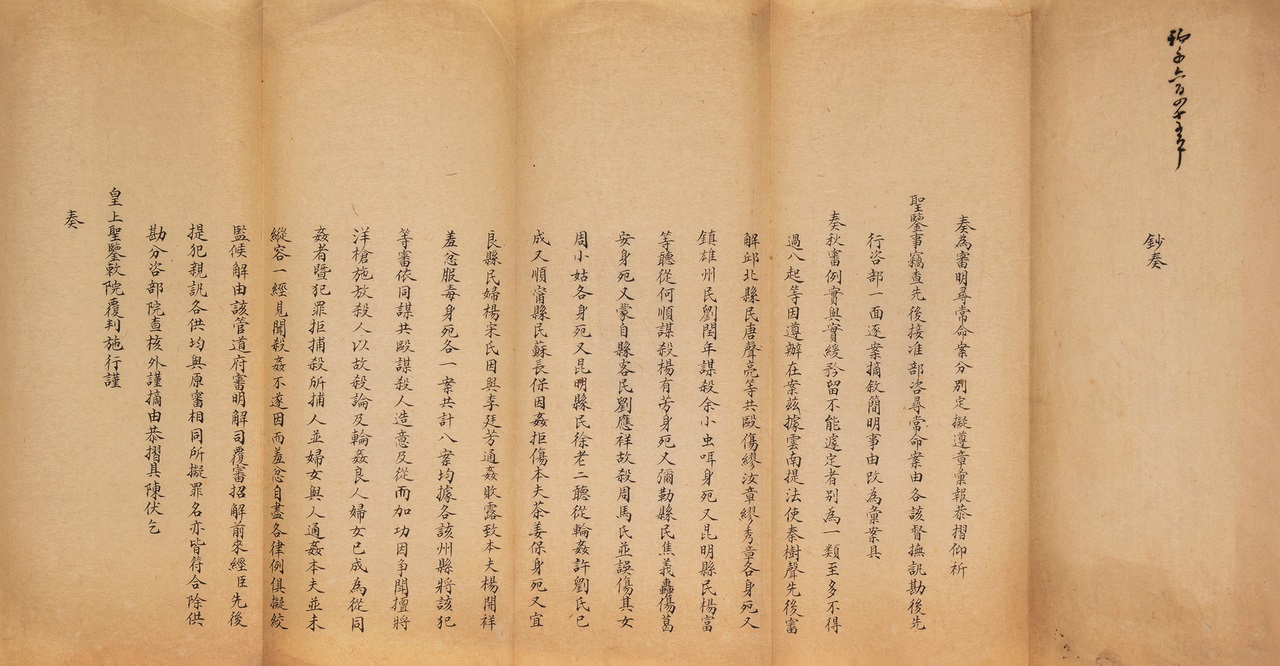 鈔奏
奏為審明尋常命案分別定擬遵章彙報恭摺仰祈
聖鑒事竊查先後接准部咨尋常命案由各該督撫訊勘後先
行咨部一面逐案摘敘簡明事由改為彙案具
奏秋審例實與實緩矜留不能遽定者別為一類至多不得
過八起等因遵辦在案茲據雲南提法使秦樹聲先後審
解邱北縣民唐聲亮等共毆傷繆汝章繆秀章各身死又
鎮雄州民劉閏年謀殺余小虫咡身死又昆明縣民楊富
等聽從何順謀殺楊有芳身死又彌勒縣民焦義轟傷葛
安身死又蒙自縣客民劉應祥故殺周馬氏並誤傷其女
周小姑各身死又昆明縣民徐老二聽從輪姦許劉氏已
成又順甯縣民蘇長保因姦拒傷本夫茶姜保身死又宜
良縣民婦楊宋氏因與李廷芳通姦敗露致本夫楊開祥
羞忿服毒身死各一案共計八案均據各該州縣將該犯
等審依同謀共毆謀殺人造意及從而加功因爭鬬擅將
洋槍施放殺人以故殺論及輪姦良人婦女已成為從同
姦者暨犯罪拒捕殺所捕人並婦女與人通姦本夫並未
縱容一經見聞殺姦不遂因而羞忿自盡各律例俱擬絞
監候解由該管道府審明解司覆審招解前來經臣先後
提犯親訊各供均與原審相同所擬罪名亦皆符合除供
勘分咨部院查核外謹摘由恭摺具陳伏乞
皇上聖鑒敕院覆判施行謹
奏